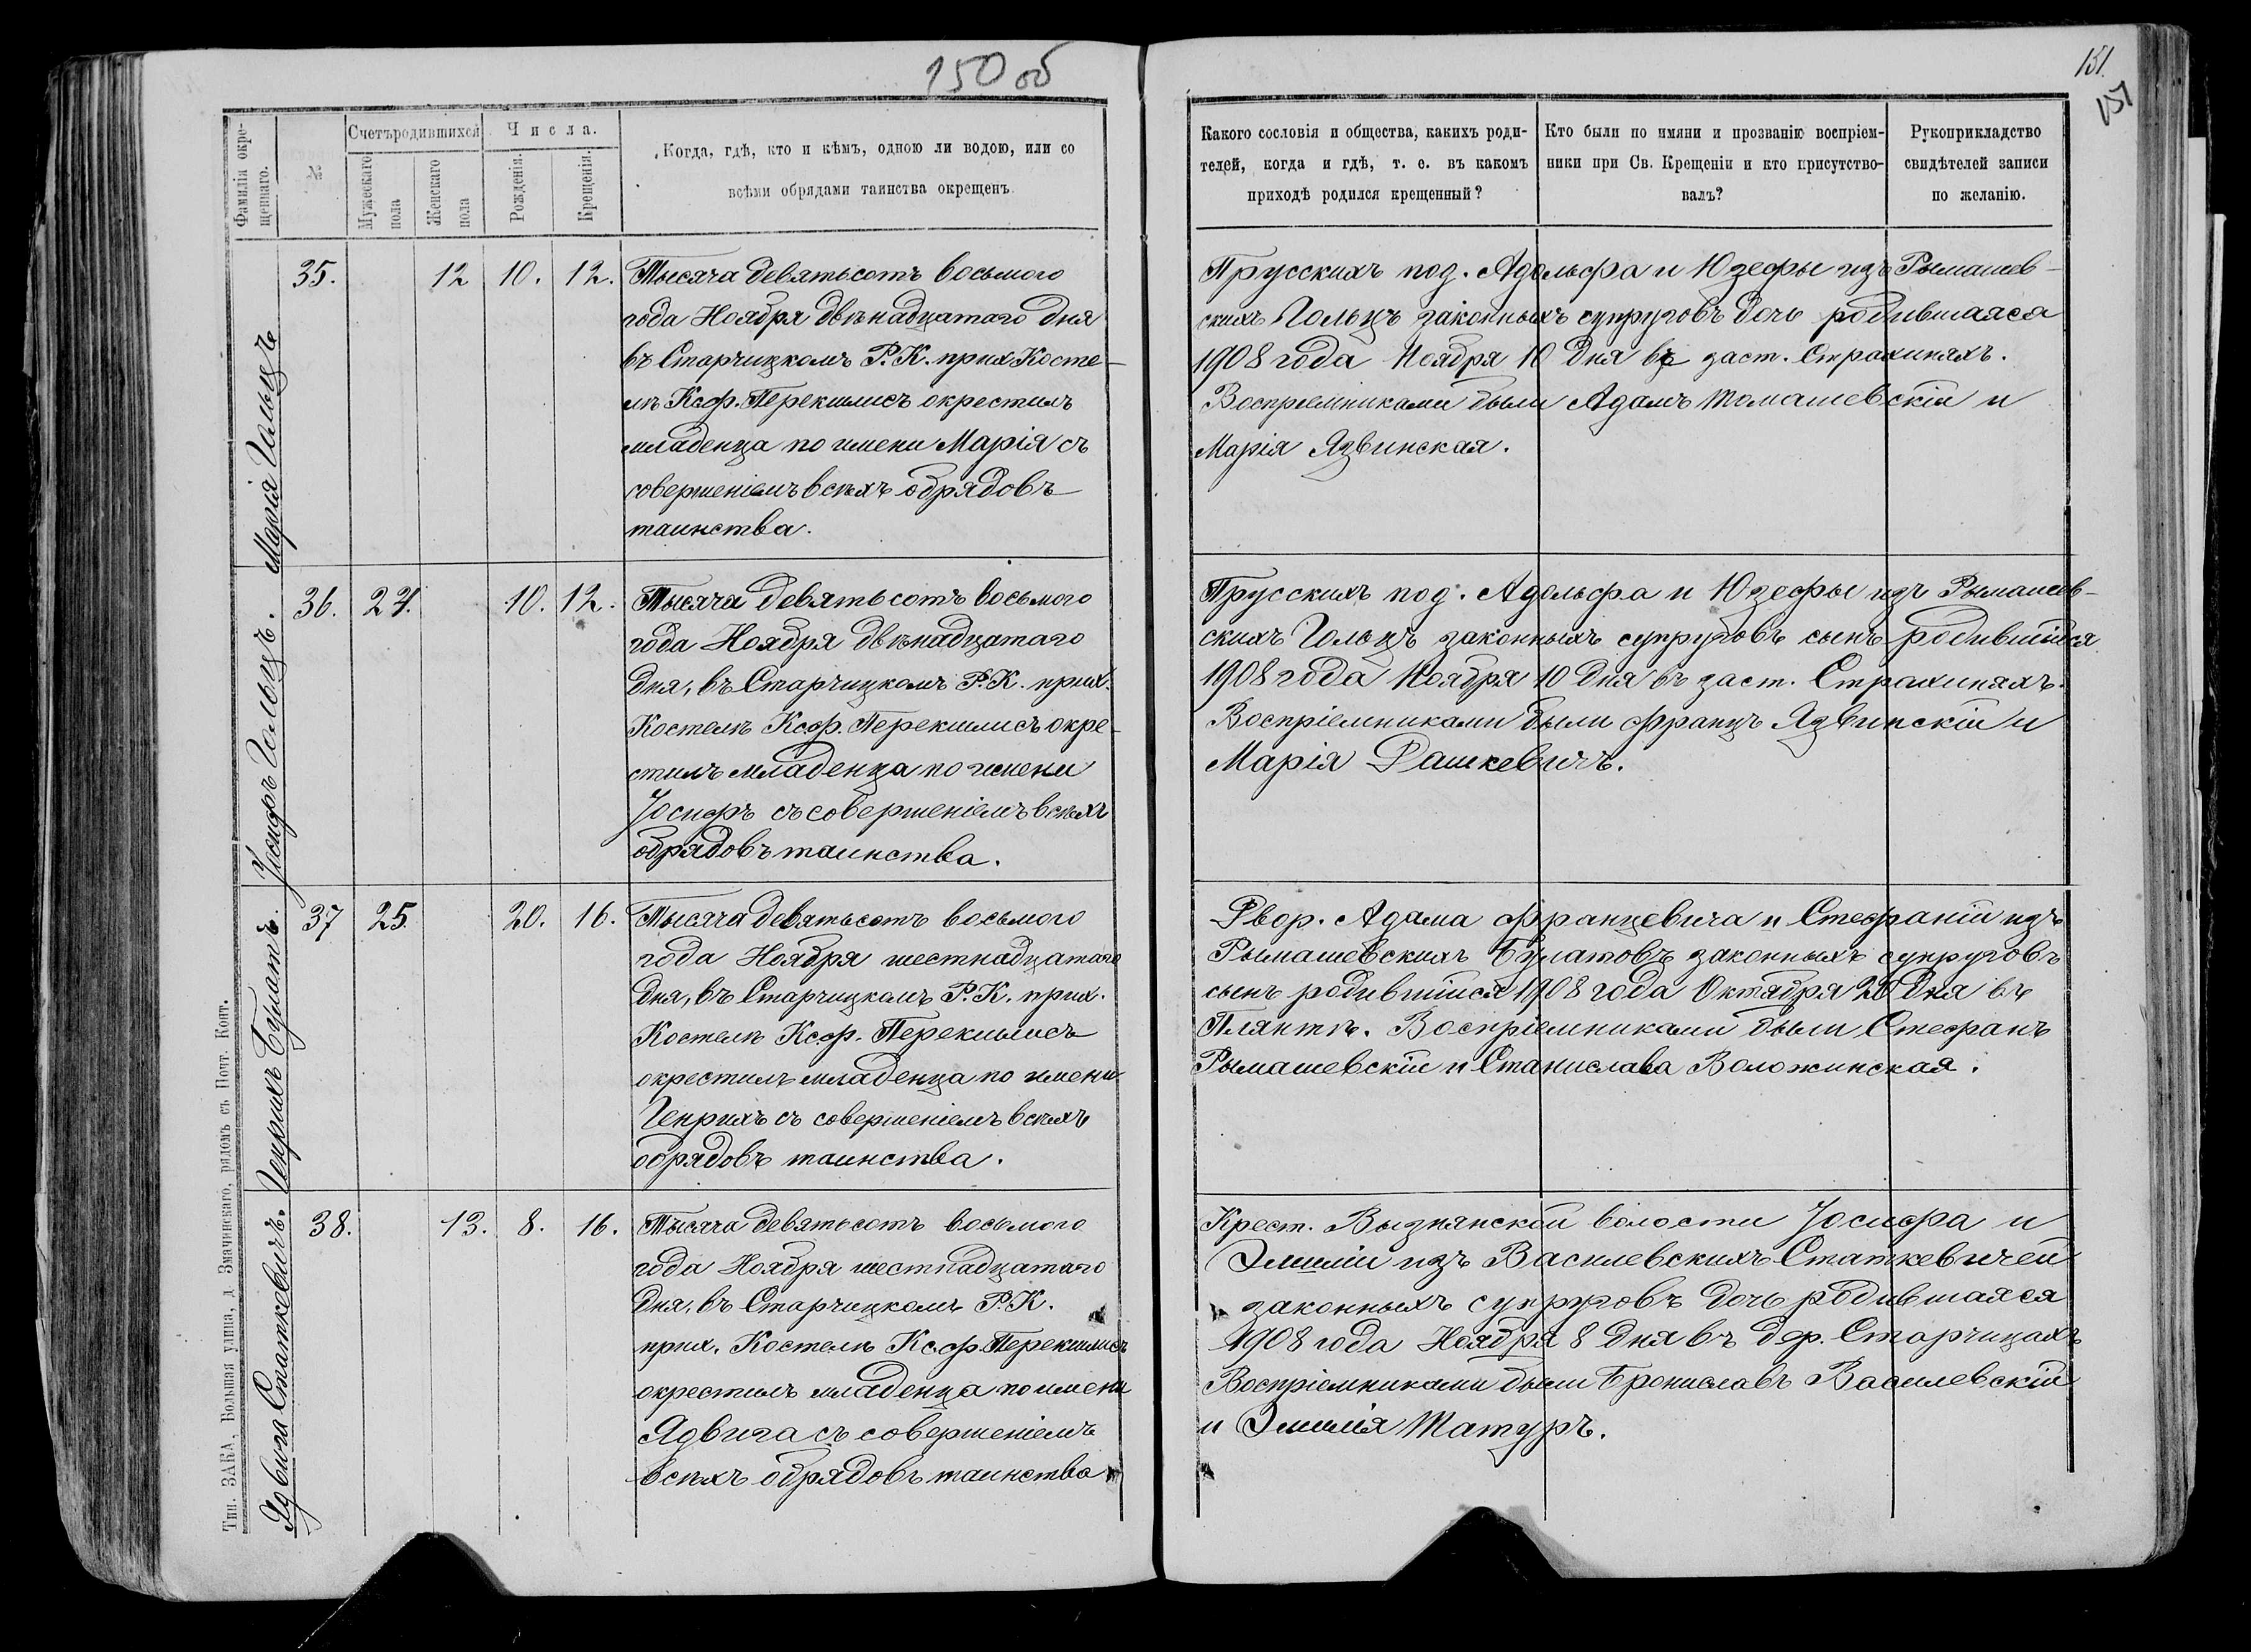 150 об
Фамилія окре-
щеннаго.
№
Счетъ родившихся
Мужескаго
пола
Женскаго
пола
Числа.
Рожденія.
Крещенія.
Когда, гдѣ, кто и кѣмъ, одною ли водою, или со
всѣми обрядами таинства окрещенъ
Марія Гольцъ
35.
12
10.
12.
Тысяча девятьсотъ восьмого
года Ноября двѣнадцатаго дня
въ Старчицкомъ Р. К. прих Косте-
лѣ Ксф. Перекшлисъ окрестилъ
младенца по имени Марія съ
совершеніемъ всѣхъ обрядовъ
таинства.
Іосифъ Гольцъ.
36.
24.
10.
12.
Тысяча девятьсотъ восьмого
года Ноября двѣнадцатаго
дня, въ Старчицкомъ Р. К. прих.
Костелѣ Ксф. Перекшлисъ окре-
стилъ младенца по имени
Іосифъ съ совершеніемъ всѣхъ
обрядовъ таинства.
Генрихъ Булатъ.
37
25.
20.
16.
Тысяча девятьсотъ восьмого
года Ноября шестнадцатаго
дня, въ Старчицкомъ Р. К. прих.
Костелѣ Ксф. Перекшлисъ
окрестилъ младенца по имени
Генрихъ съ совершеніемъ всѣхъ
обрядовъ таинства.
Ядвига Статкевичъ.
38.
13.
8.
16.
Тысяча девятьсотъ восьмого
года Ноября шестнадцатаго
дня, въ Старчицкомъ Р. К.
прих. Костелѣ Ксф. Перекшлисъ
окрестилъ младенца по имени
Ядвига съ совершеніемъ
всѣхъ обрядовъ таинства
Тип. ЗАКА, Большая улица, д Змачинскаго, рядомъ съ Почт. Конт.
151.
151
Какого сословія и общества, какихъ роди-
телей, когда и гдѣ, т. е. въ какомъ
приходѣ родился крещенный?
Кто были по имяни и прозванію воспріем-
ники при Св. Крещеніи и кто присутство-
валъ?
Рукоприкладство
свидѣтелей записи
по желанію.
Прусскихъ под. Адольфа и Юзефы изъ Рымашев-
скихъ Гольцъ законныхъ супруговъ дочь родившаяся
1908 года Ноября 10 дня въ заст. Страхиняхъ.
Воспріемниками были Адамъ Томашевскій и
Марія Язвинская.
Прусскихъ под. Адольфа и Юзефы изъ Рымашев-
скихъ Гольцъ законныхъ супруговъ сынъ родившійся
1908 года Ноября 10 дня въ заст. Страхиняхъ.
Воспріемниками были Францъ Язвинскій и
Марія Рашкевичъ.
Двор. Адама Францевича и Стефаніи изъ
Рымашевскихъ Булатовъ законныхъ супруговъ
сынъ родившійся 1908 года Октября 20 дня въ
Плянтѣ. Воспріемниками были Стефанъ
Рымашевскій и Станислава Воложинская.
Крест. Вызнянской волости Іосифа и
Эмиліи изъ Василевскихъ Статкевичей
законныхъ супруговъ дочь родившаяся
1908 года Ноября 8 дня въ дер. Старчицахъ
Воспріемниками были Брониславъ Василевскій
и Эмилія Татуръ.